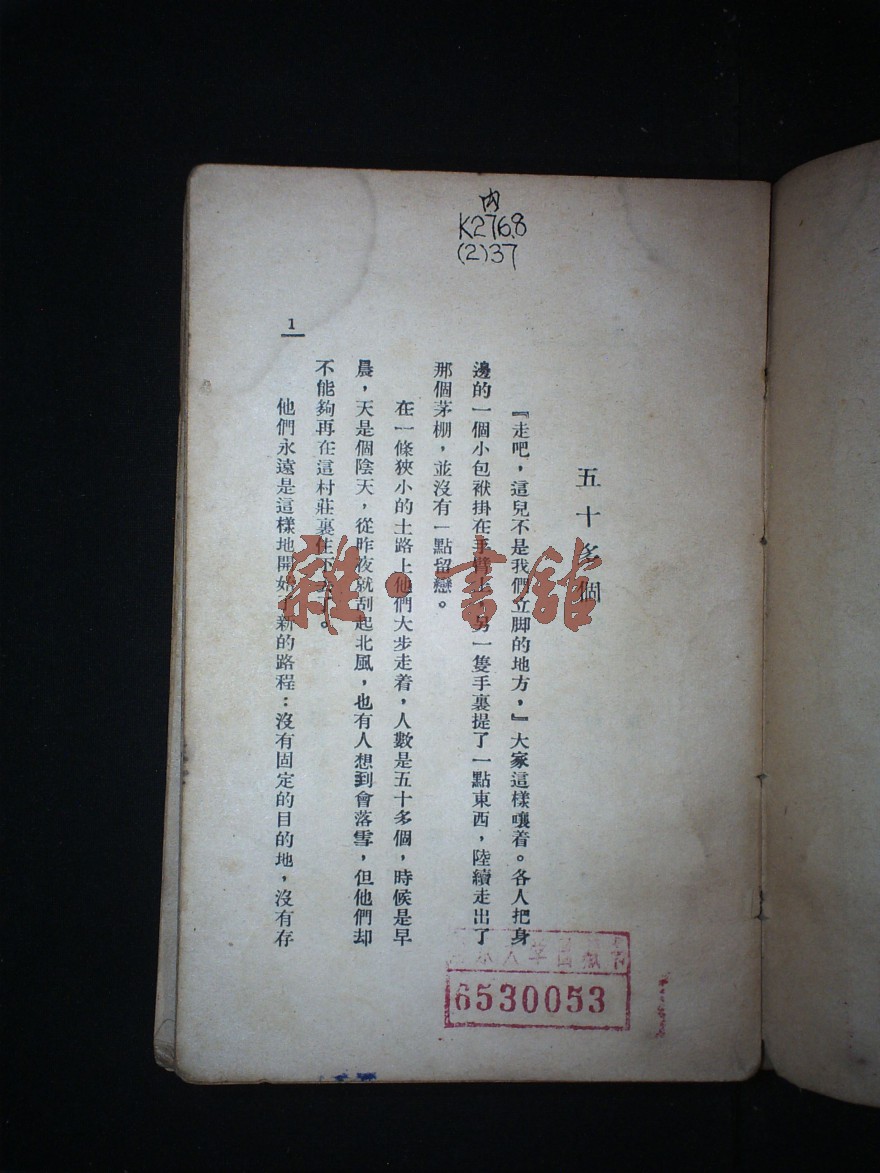 内
K276.8
(2)37
五十多個
『走吧，這兒不是我們立脚的地方，』大家這樣嚷着。各人把身
邊的一個小包袱掛在手臂上，另一隻手裏提了一點東西，陸續走出了
那個茅棚，並沒有一點留戀。
在一條狹小的土路上他們大步走着，人數是五十多個，時候是早
晨，天是個陰天，從昨夜就刮起北風，也有人想到會落雪，但他們却
不能夠再在這村莊裏住下去了。
他們永遠是這樣地開始了新的路程：沒有固定的目的地，沒有存
1
雜·書館
6530053